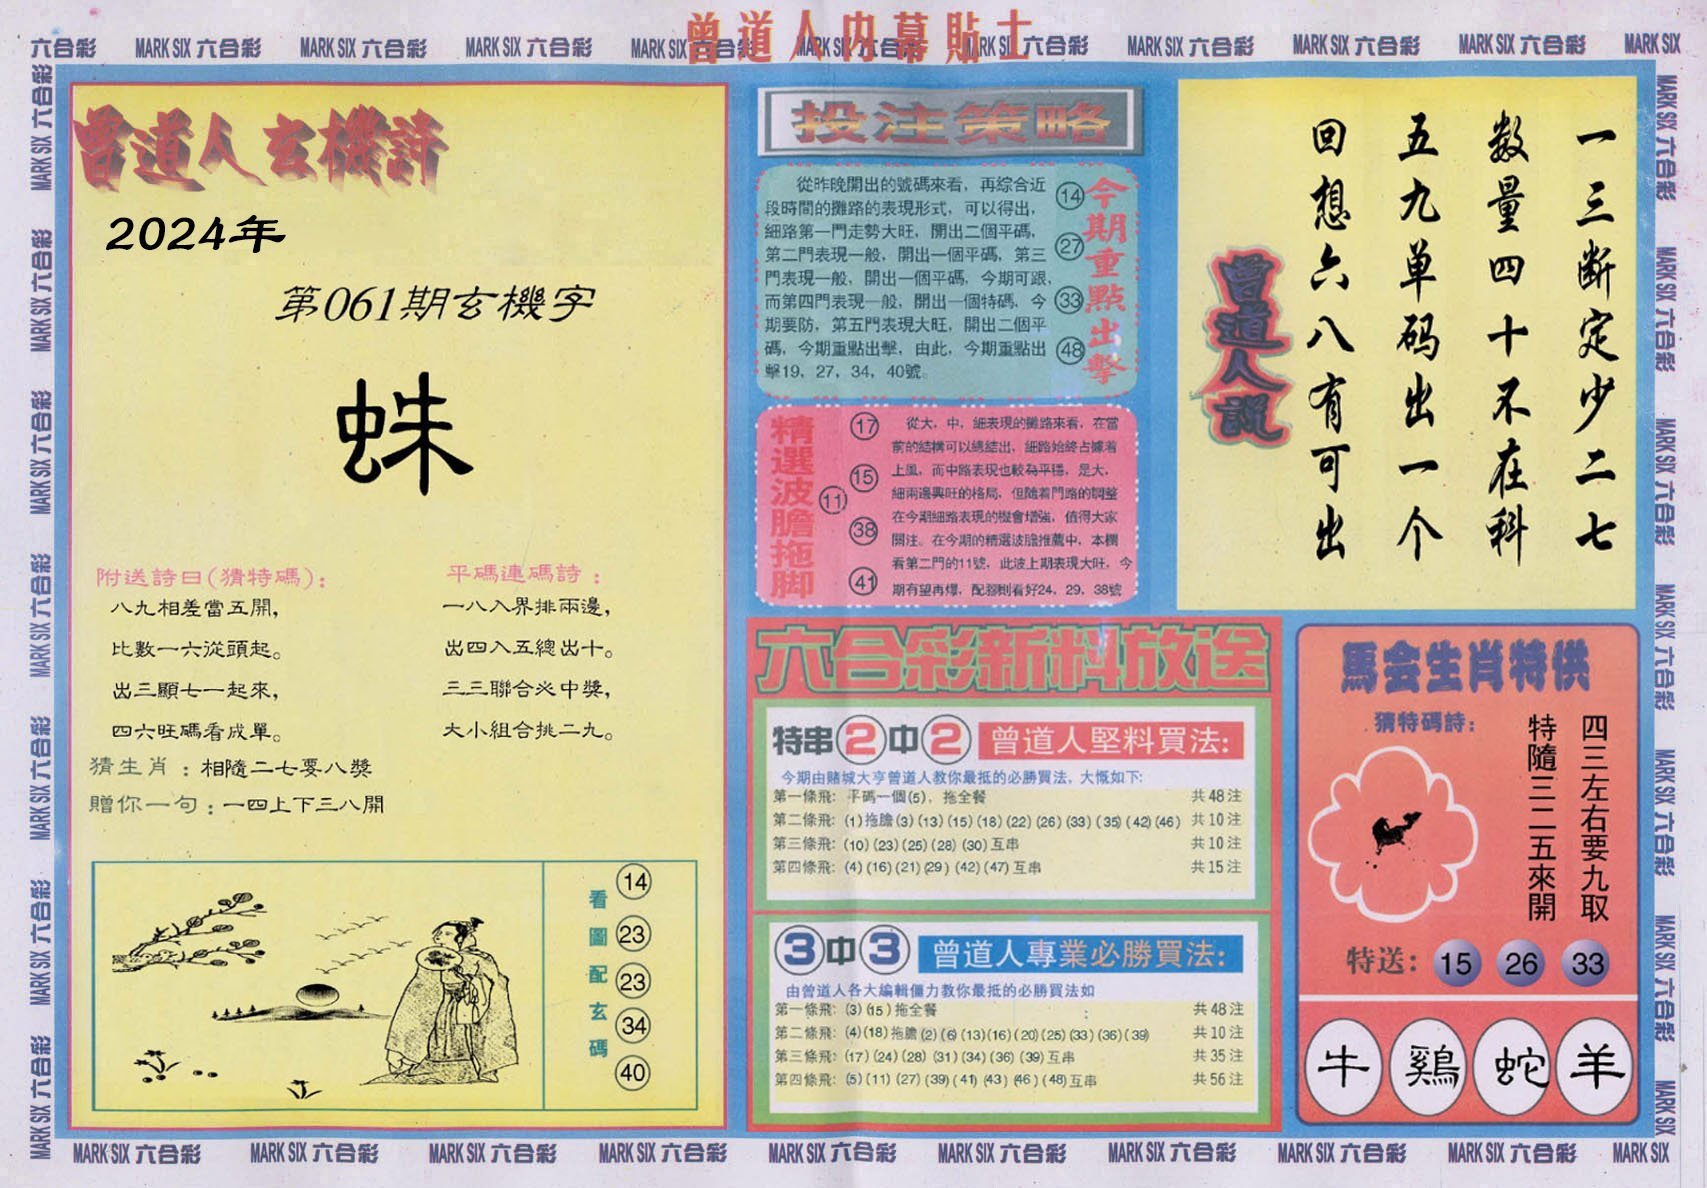 曾道人内幕貼士
六合彩 MARK SIX 六合彩 MARK SIX 六合彩 MARK SIX 六合彩 MARK SIX 六合彩 MARK SIX 六合彩 MARK SIX 六合彩 MARK SIX 六合彩 MARK SIX 六合彩 MARK SIX 六合彩 MARK SIX
曾道人玄機詩
2024年
第061期玄機字
蛛
附送詩曰(猜特碼):
八九相差當五開,
比數一六從頭起。
出三顯七一起來,
四六旺碼看成單。
平碼連碼詩:
一八入界排兩邊,
出四入五總出十。
三三聯合必中獎,
大小組合挑二九。
猜生肖:相隨二七要八獎
贈你一句:一四上下三八開
看圖配玄碼
14
23
23
34
40
投注策略
從昨晚開出的號碼來看，再綜合近
段時間的攤路的表現形式，可以得出，
細路第一門走勢大旺，開出二個平碼，
第二門表現一般，開出一個平碼，第三
門表現一般，開出一個平碼，今期可跟，
而第四門表現一般，開出一個特碼，今
期要防，第五門表現大旺，開出二個平
碼，今期重點出擊，由此，今期重點出
擊19，27，34，40號。
14
27
33
48
今期重點出擊
精選波膽拖脚
17
15
11
38
41
從大，中，細表現的攤路來看，在當
前的結構可以總結出，細路始終占據着
上風，而中路表現也較為平穩，是大，
細兩邊興旺的格局，但隨着門路的調整
在今期細路表現的機會增強，值得大家
關注。在今期的精選波膽推薦中，本欄
看第二門的11號，此波上期表現大旺，今
期有望再爆，配脚則看好24，29，38號
曾道人説
一三断定少二七
数量四十不在科
五九单码出一个
回想六八有可出
六合彩新料放送
特串2中2 曾道人堅料買法:
今期由賭城大亨曾道人教你最抵的必勝買法，大慨如下:
第一條飛: 平碼一個(5)，拖全餐 共48注
第二條飛: (1)拖膽(3)(13)(15)(18)(22)(26)(33)(35)(42)(46) 共10注
第三條飛: (10)(23)(25)(28)(30)互串 共10注
第四條飛: (4)(16)(21)(29)(42)(47)互串 共15注
3中3 曾道人專業必勝買法:
由曾道人各大編輯僵力教你最抵的必勝買法如
第一條飛: (3)(15)拖全餐 共48注
第二條飛: (4)(18)拖膽(2)(6)(13)(16)(20)(25)(33)(36)(39) 共10注
第三條飛: (17)(24)(28)(31)(34)(36)(39)互串 共35注
第四條飛: (5)(11)(27)(39)(41)(43)(46)(48)互串 共56注
馬会生肖特供
猜特碼詩:
四三左右要九取
特隨三二五來開
特送: 15 26 33
牛 鷄 蛇 羊
MARK SIX 六合彩 MARK SIX 六合彩 MARK SIX 六合彩 MARK SIX 六合彩 MARK SIX 六合彩 MARK SIX 六合彩 MARK SIX 六合彩 MARK SIX 六合彩 MARK SIX 六合彩 MARK SIX